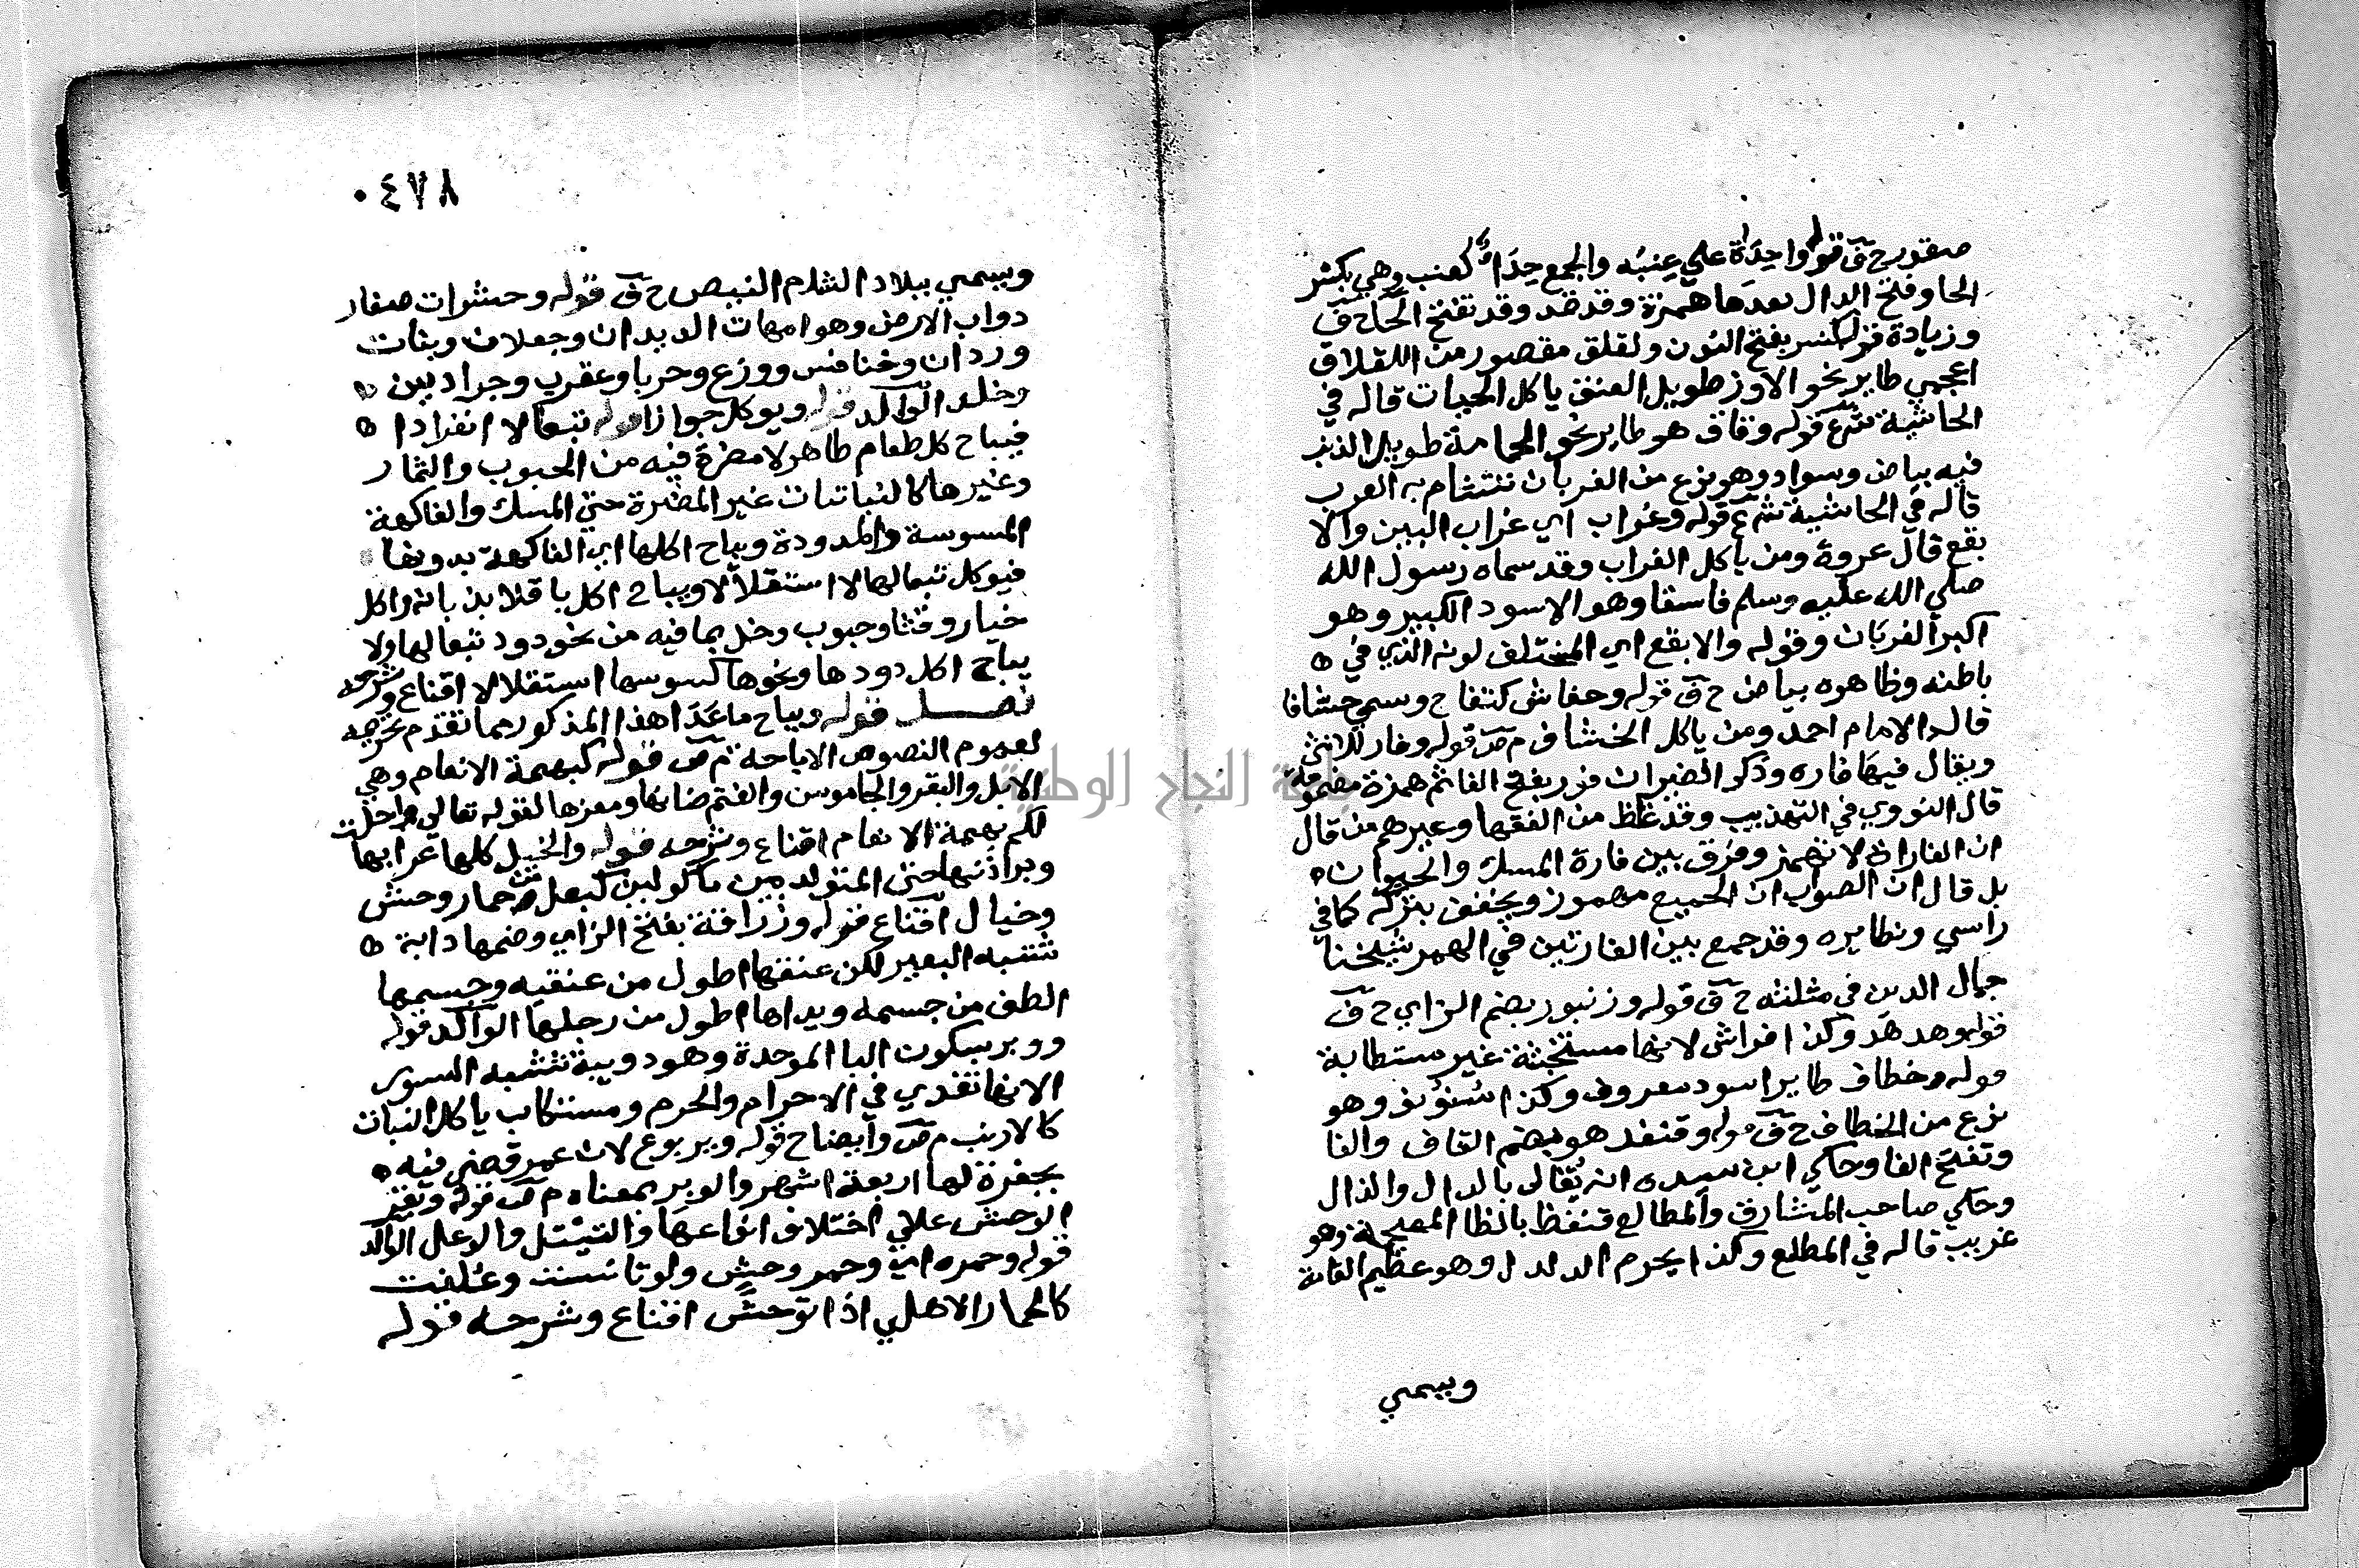 صقور ح ق قوله واحدة علي عنبه والجمع حدَاءٌ كعنب وهي بكسر
الحا وفتح الدال بعدها همزة وقد تفتح الحا ح ق
وزيادة قوله كنسر بفتح النون ولقلق مقصور من اللقلاق
اعجمي طاير نحو الاوز طويل العنق ياكل الحيات قاله في
الحاشية ش ع قوله وقاق هو طاير نحو الحمامة طويل الذنب
فيه بياض وسواد وهو نوع من الغربان تتشام به العرب
قاله في الحاشية ش ع قوله وغراب اي غراب البين والا
بقع قال عروة ومن ياكل الغراب وقد سماه رسول الله
صلي الله عليه وسلم فاسقا وهو الاسود الكبير وهو
اكبر الغربان وقوله والابقع اي المختلف لونه الذي في
باطنه وظاهره بياض ح ق قوله وخفاش كتفاح وسمي خشافا
قال الامام احمد ومن ياكل الخشاف م ص قوله وفار للانثي
ويقال فيها فاره وذكر الضبران فور بفتح الفا ثم همزة مضمومة
قال النووي في التهذيب وقد غلظ من الفقها وغيرهم من قال
ان الفارة لا تهمز وفرق بين فارة المسك والحيوان
بل قال ان الصواب ان الجميع مهموز ويخفف بتركه كما في
راسي ونظايره وقد جمع بين الفارتين في الهمز شيخنا
جمال الدين في مثلثه ح ق قوله وزنبور بضم الزاي ح ق
قوله وهدهد وكذا فراش لانها مستخبثة غير مستطابة
قوله وخطاف طاير اسود معروف وكذا سنونو وهو
نوع من الخطاف ح ق قوله وقنفد هو بضم القاف والفا
وتفتح الفا وحكي ابن سيده انه يُقال بالدال والذال
وحكي صاحب المشارق والمطالع قنفظ بالظا المعجمة وهو
غريب قاله في المطلع وكذا يحرم الدلدل وهو عظيم القامة
ويسمي
٠٤٧٨
ويسمي ببلاد الشام النيص ح ق قوله وحشرات صغار
دواب الارض وهوامها ت الديدان وجعلان وبنات
وردان وخنافس ووزع وحربا وعقرب وجراد بين
وخلد الوالد قوله ويوكل جوازا قوله تبعا لا انفرادا
فيباح كل طعام طاهر لا مضرة فيه من الحبوب والثمار
وغيرها كالنباتات غير المضرة حتي المسك والفاكهة
المسوسة والمدودة ويباح اكلها اي الفاكهة بدودها
فيوكل تبعا لها لا استقلالا ويباح اكل باقلا بذبابه واكل
خيار وقثا وحبوب وخل بما فيه من نحو دود تبعا لها ولا
يباح اكل دودها ونحوها كسوسها استقلالا اقناع وشرحه
فصل قوله ويباح ما عَدَا هذا المذكور مما تقدم تحريمه
لعموم النصوص الاباحة م ص قوله كبهيمة الانعام وهي
الابل والبقر والجاموس والغنم ضانها ومعزها لقوله تعالي واحلت
لكم بهيمة الانعام اقناع وشرحه قوله والخيل كلها عرابها
وبراذنها حتي المتولد بين ماكولين كبغل من حمار وحش
وخيال اقناع قوله وزرافة بفتح الزاي وضمها دابة
تشبه البعير لكن عنقها اطول من عنقيه وجسمها
الطف من جسمه ويداها اطول من رجليها الوالد قوله
ووبر بسكون البا الموحدة وهو دويبة تشبه السنور
لانها تفدي في الاحرام والحرم ومستطاب ياكل النبات
كالارنب م ص وايضاح قوله ويربوع لان عمر قضي فيه
بجفرة لها اربعة اشهر والوبر بمعناه م ص قوله وبقر
الوحش علي اختلاف انواعها والتيتل والوعل الوالد
قوله وحمره اي وحمر وحش ولو تانست وعُلفت
كالحمار الاهلي اذا توحش اقناع وشرحه قوله
جامعة النجاح الوطنية